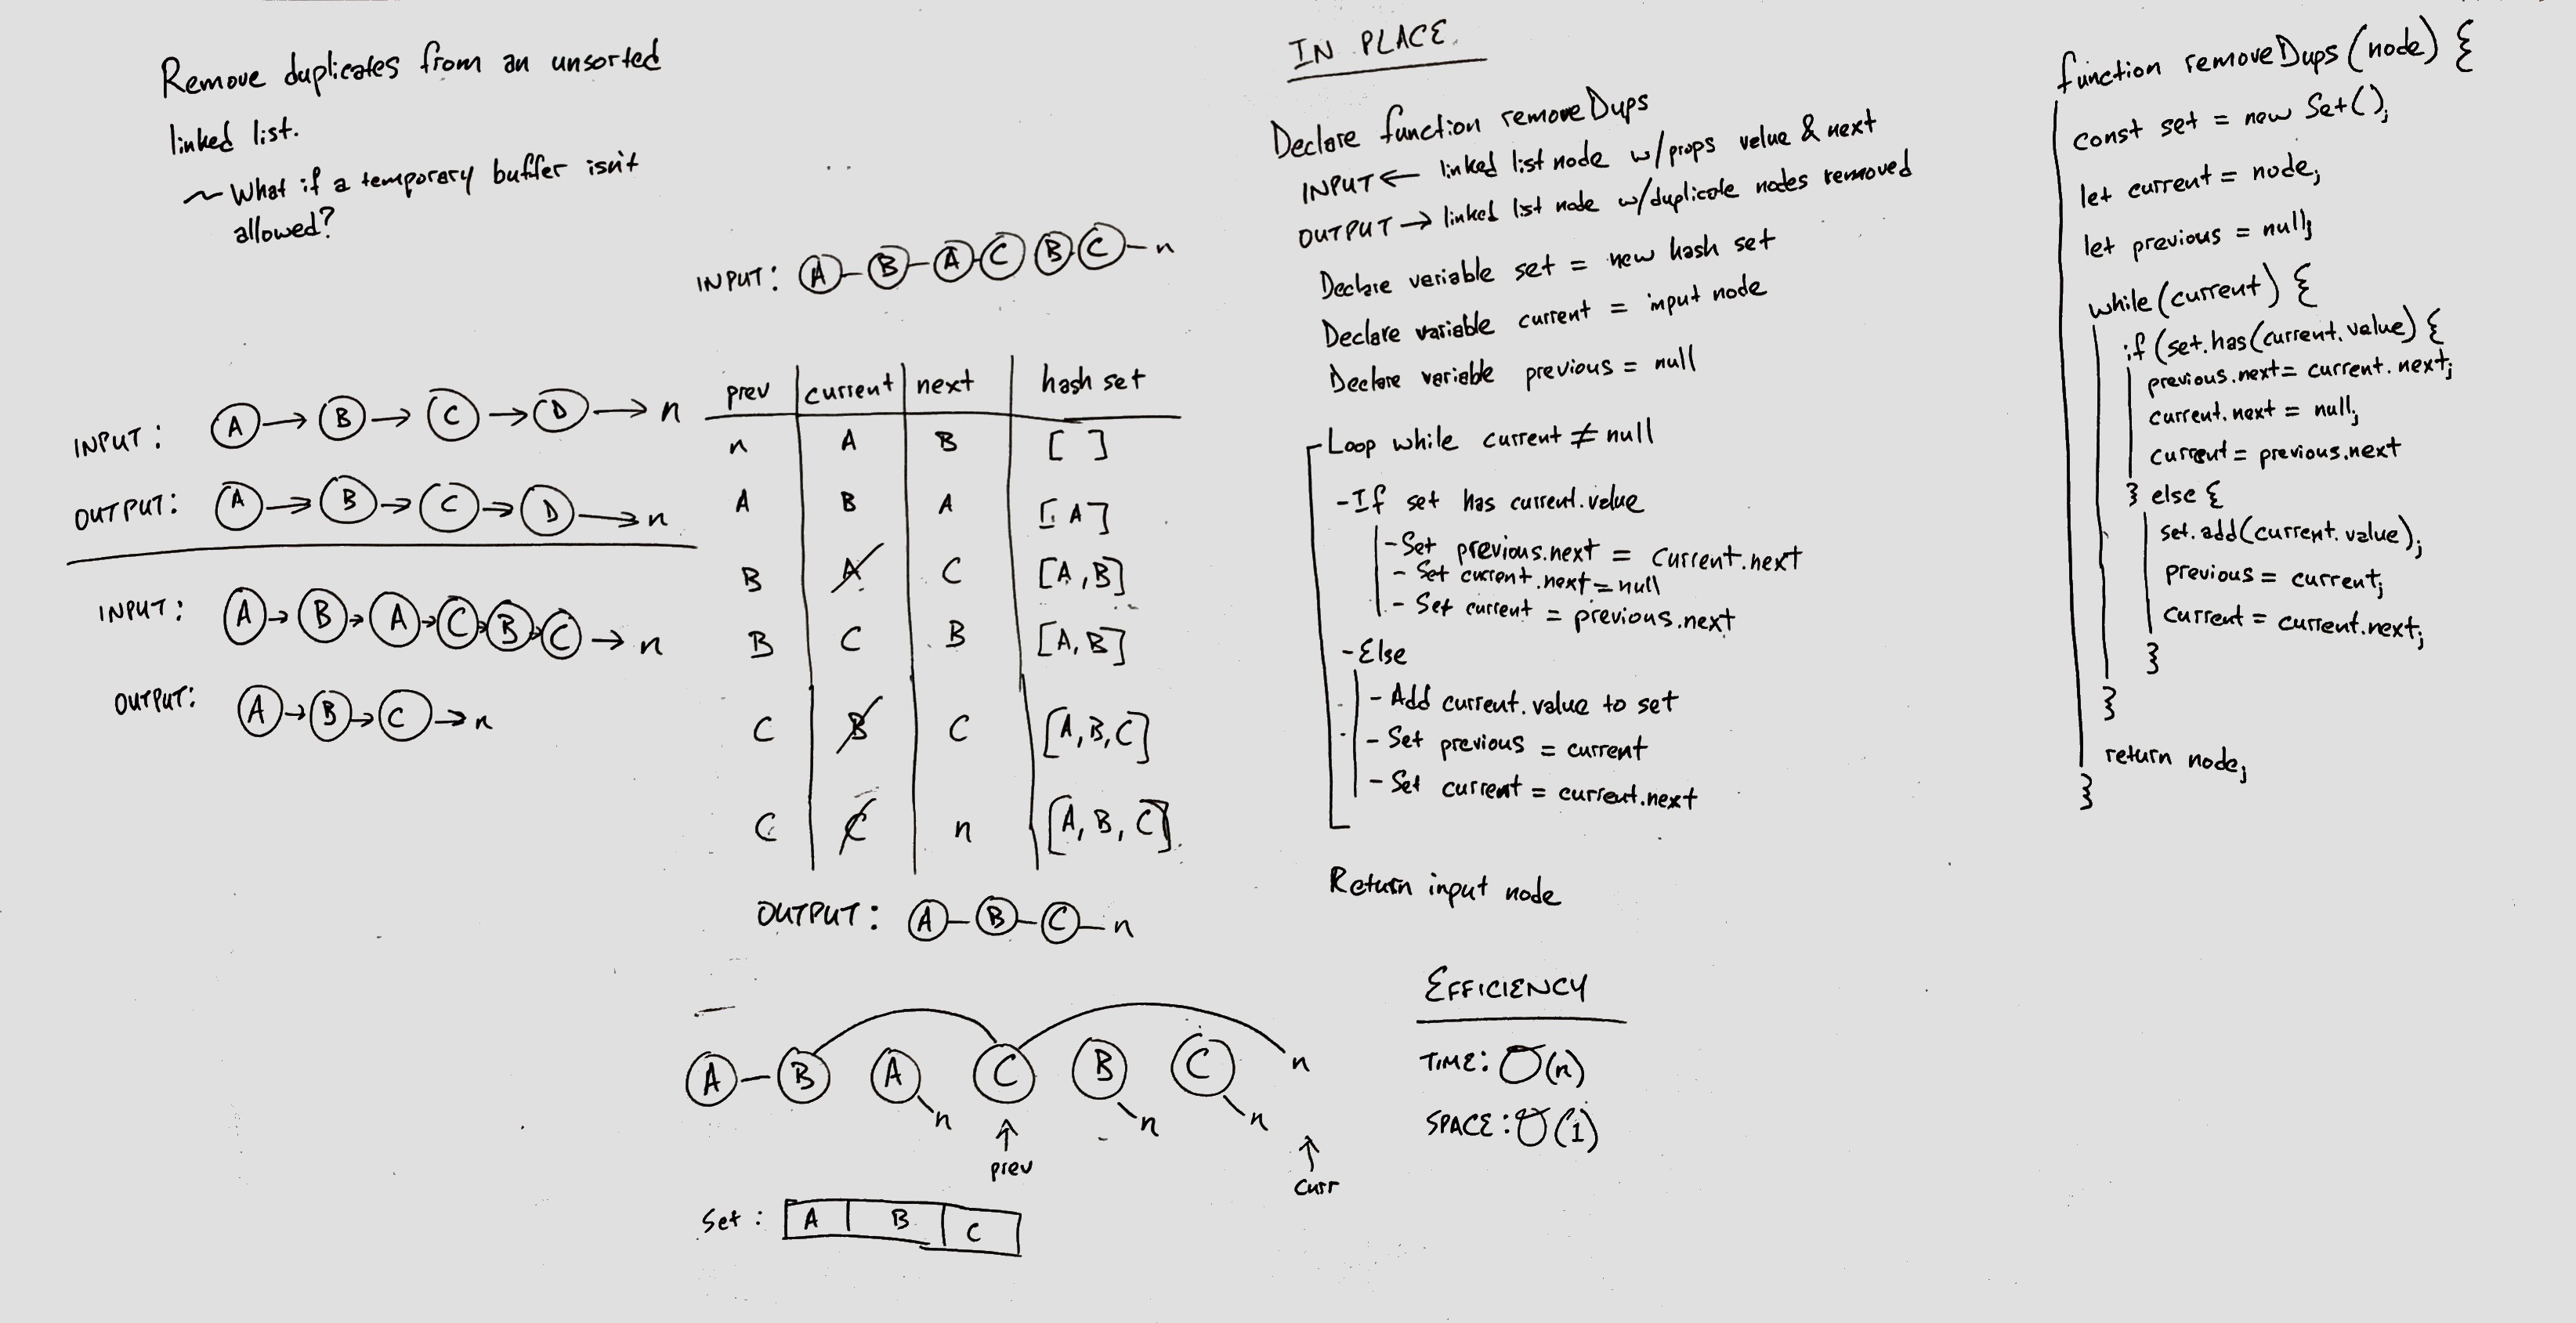 Remove duplicates from an unsorted
linked list.
~ What if a temporary buffer isn't
allowed?
INPUT: A → B → C → D → n
OUTPUT: A → B → C → D → n
INPUT: A → B → A → C → B → C → n
OUTPUT: A → B → C → n
INPUT: A - B - A - C B C - n
prev | current | next | hash set
n | A | B | [ ]
A | B | A | [A]
B | A | C | [A,B]
B | C | B | [A,B]
C | B | C | [A,B,C]
C | C | n | [A, B, C]
OUTPUT: A - B - C - n
A - B A C B C n
n n n
prev
curr
Set: A B C
IN PLACE
Declare function removeDups
INPUT ← linked list node w/props value & next
OUTPUT → linked list node w/duplicate nodes removed
Declare variable set = new hash set
Declare variable current = input node
Declare variable previous = null
Loop while current ≠ null
- If set has current.value
- Set previous.next = current.next
- Set current.next = null
- Set current = previous.next
- Else
- Add current.value to set
- Set previous = current
- Set current = current.next
Return input node
EFFICIENCY
TIME: O(n)
SPACE: O(1)
function removeDups (node) {
const set = new Set();
let current = node;
let previous = null;
while (current) {
if (set.has(current.value) {
previous.next = current.next;
current.next = null;
current = previous.next
} else {
set.add(current.value);
previous = current;
current = current.next;
}
}
return node;
}